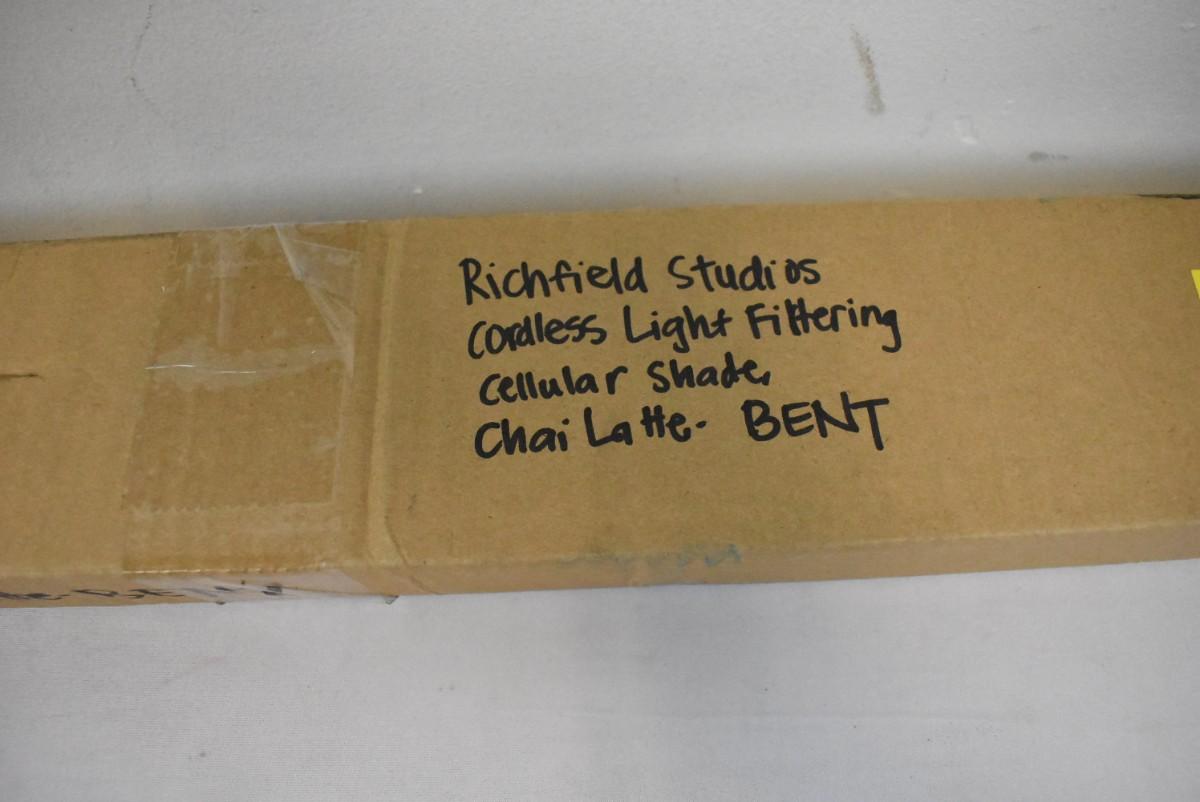 Richfield Studios
Cordless Light Filtering
Cellular Shade,
Chai Latte. BENT